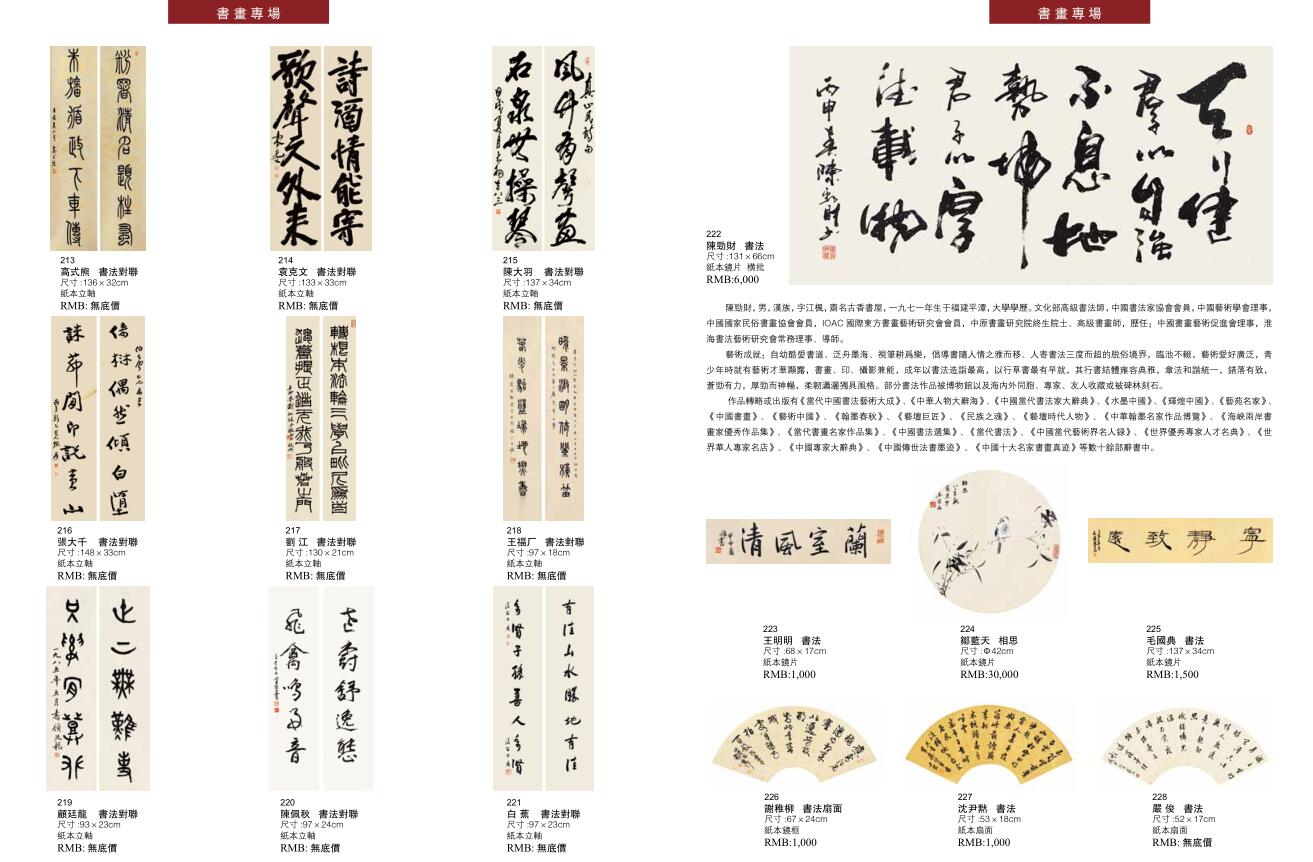 書畫專場
213
高式熊　書法對聯
尺寸:136×32cm
紙本立軸
RMB: 無底價
214
袁克文　書法對聯
尺寸:133×33cm
紙本立軸
RMB: 無底價
215
陳大羽　書法對聯
尺寸:137×34cm
紙本立軸
RMB: 無底價
詩酒情能寄
歌聲天外來
風竹有聲畫
石泉無操琴
216
張大千　書法對聯
尺寸:148×33cm
紙本立軸
RMB: 無底價
217
劉 江　書法對聯
尺寸:130×21cm
紙本立軸
RMB: 無底價
218
王福厂　書法對聯
尺寸:97×18cm
紙本立軸
RMB: 無底價
219
顧廷龍　書法對聯
尺寸:93×23cm
紙本立軸
RMB: 無底價
220
陳佩秋　書法對聯
尺寸:97×24cm
紙本立軸
RMB: 無底價
221
白 蕉　書法對聯
尺寸:97×23cm
紙本立軸
RMB: 無底價
有佳山水勝地有佳
多賢子孫善人多賢
書畫專場
天行健
君子以自強
不息地
勢坤
君子以厚
德載物
丙申春陳勁財書
222
陳勁財　書法
尺寸:131×66cm
紙本鏡片 橫批
RMB:6,000
陳勁財，男，漢族，字江楓，齋名古香書屋，一九七一年生于福建平潭，大學學歷。文化部高級書法師，中國書法家協會會員，中國藝術學會理事，
中國國家民俗書畫協會會員，IOAC 國際東方書畫藝術研究會會員，中原書畫研究院終生院士、高級書畫師，歷任；中國書畫藝術促進會理事，淮
海書法藝術研究會常務理事、導師。
藝術成就；自幼酷愛書道、泛舟墨海、視筆耕爲樂，倡導書隨人情之雅而移、人寄書法三度而超的脫俗境界，臨池不輟，藝術愛好廣泛，青
少年時就有藝術才華顯露，書畫、印、攝影兼能，成年以書法造詣最高，以行草書最有早就，其行書結體雍容典雅，章法和諧統一，錯落有致，
蒼勁有力，厚勁而神暢，柔韌瀟灑獨具風格。部分書法作品被博物館以及海内外同胞、專家、友人收藏或被碑林刻石。
作品轉略或出版有《當代中國書法藝術大成》、《中華人物大辭海》、《中國當代書法家大辭典》、《水墨中國》、《輝煌中國》、《藝苑名家》、
《中國書畫》、《藝術中國》、《翰墨春秋》、《藝壇巨匠》、《民族之魂》、《藝壇時代人物》、《中華翰墨名家作品博覽》、《海峽兩岸書
畫家優秀作品集》、《當代書畫名家作品集》、《中國書法選集》、《當代書法》、《中國當代藝術界名人録》、《世界優秀專家人才名典》、《世
界華人專家名店》、《中國專家大辭典》、《中國傳世法書墨迹》、《中國十大名家書畫真迹》等數十餘部辭書中。
蘭室風清
寧靜致遠
223
王明明　書法
尺寸:68×17cm
紙本鏡片
RMB:1,000
224
鄒藍天　相思
尺寸:Φ42cm
紙本鏡片
RMB:30,000
225
毛國典　書法
尺寸:137×34cm
紙本鏡片
RMB:1,500
226
謝稚柳　書法扇面
尺寸:67×24cm
紙本鏡框
RMB:1,000
227
沈尹黙　書法
尺寸:53×18cm
紙本扇面
RMB:1,000
228
嚴 俊　書法
尺寸:52×17cm
紙本扇面
RMB: 無底價